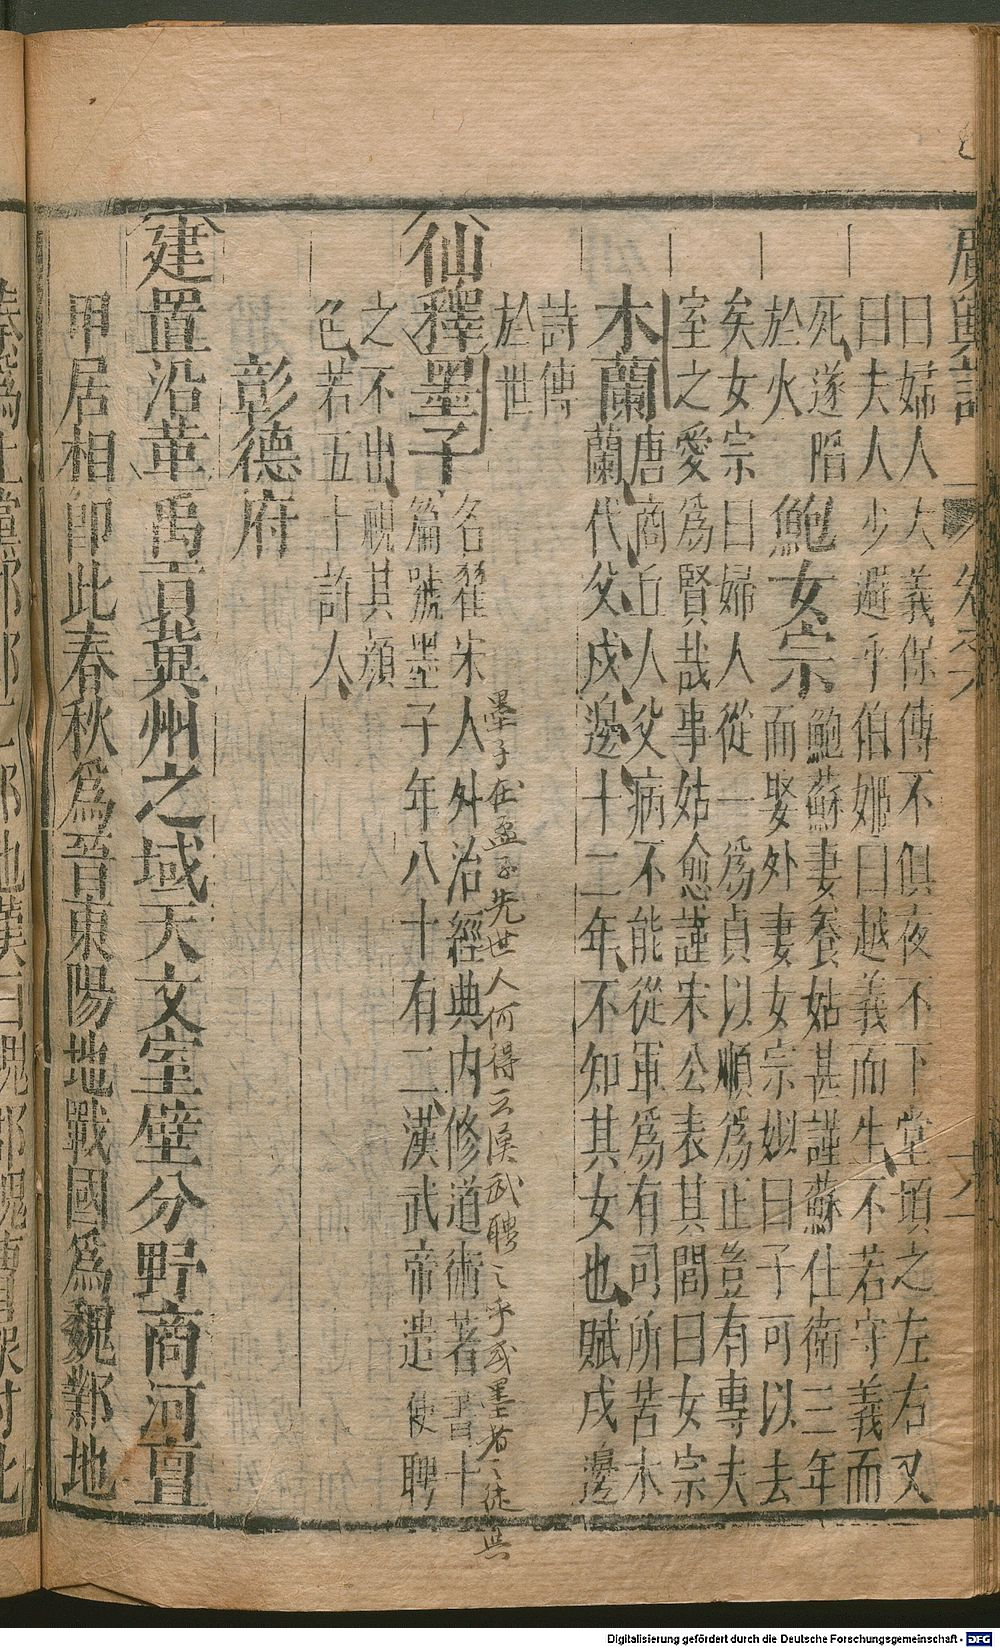 廣輿記 卷之六
曰婦人之義保傅不俱夜不下堂頃之左右又
曰夫人少避乎伯姬曰越義而生不若守義而
死遂陷
於火
鮑女宗
鮑蘇妻養姑甚謹蘇仕衛三年
而娶外妻女宗姒曰子可以去
矣女宗曰婦人從一爲貞以順爲正豈有專夫
室之愛爲賢哉事姑愈謹宋公表其閭曰女宗
木蘭
唐商丘人父病不能從軍爲有司所苦木
蘭代父戍邊十二年不知其女也賦戍邊
詩傳
於世
墨子在孟子先世人何得云漢武聘之乎或墨者之徒與
仙釋墨子
名翟宋人外治經典内修道術著書十
篇號墨子年八十有二漢武帝遣使聘
之不出視其顏
色若五十許人
彰德府
建置沿革禹貢冀州之域天文室壁分野商河亶
甲居相即此春秋爲晉東陽地戰國爲魏鄴地
Digitalisierung gefördert durch die Deutsche Forschungsgemeinschaft - DFG